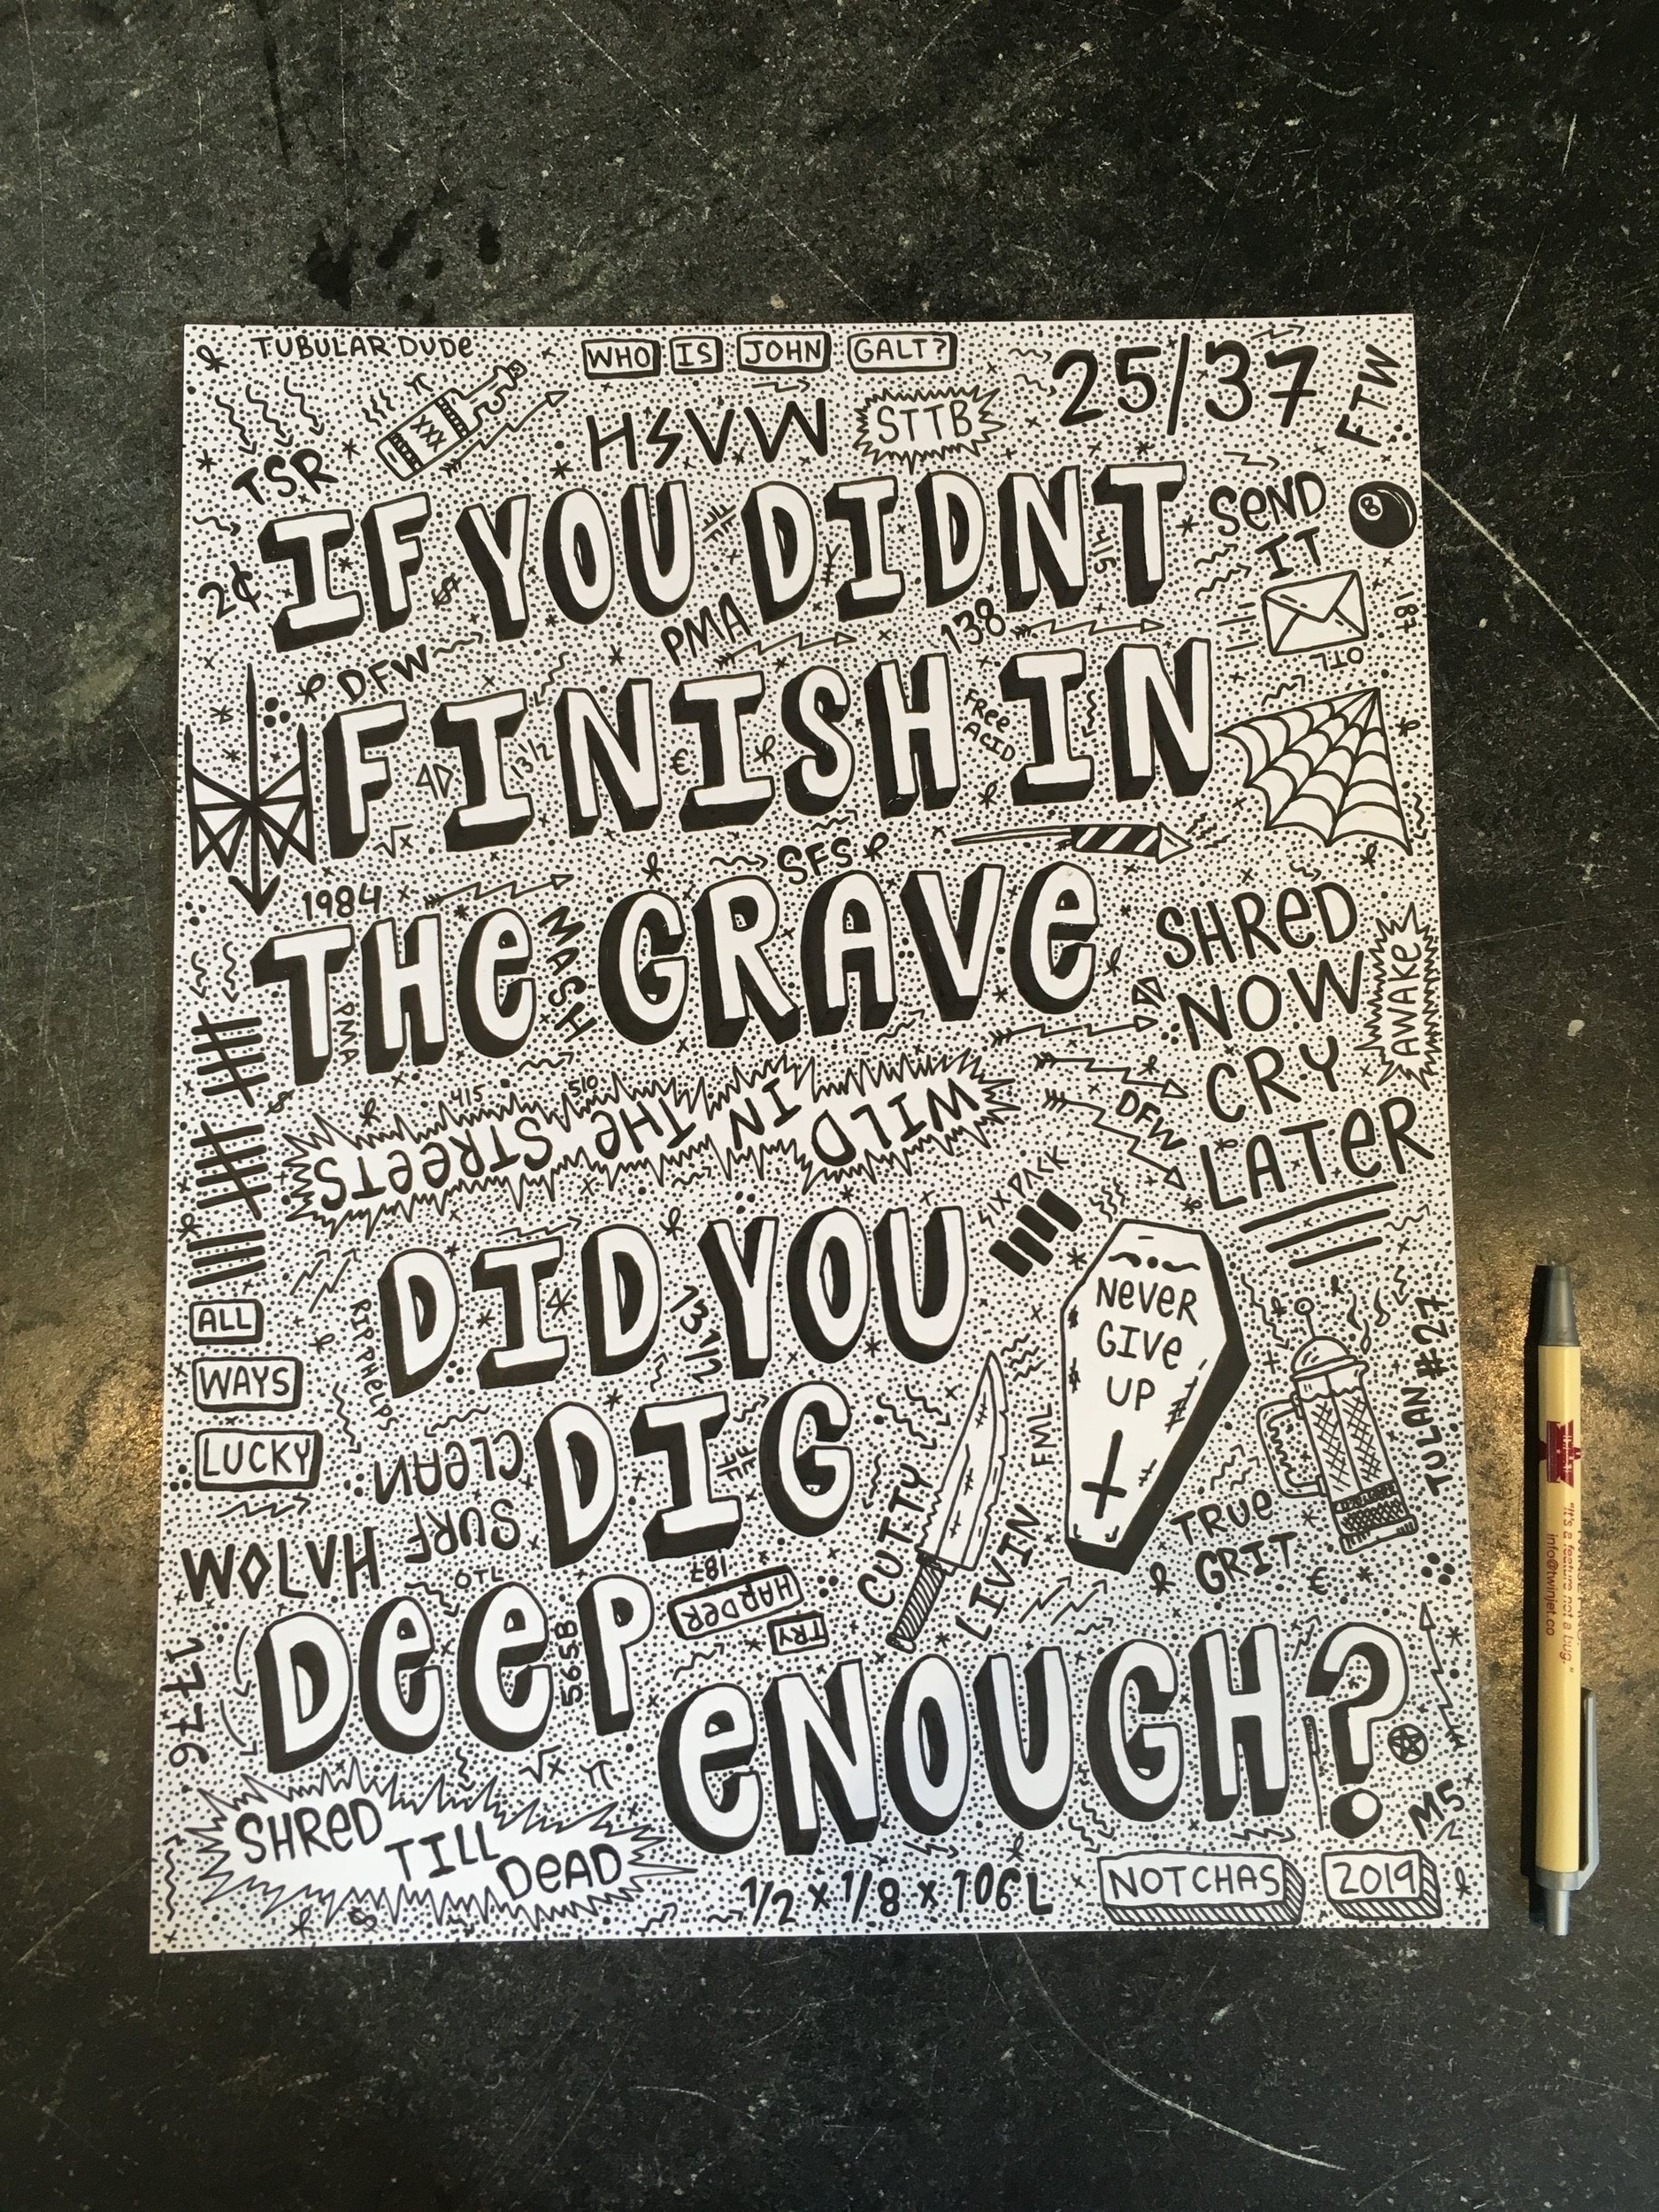 TUBULAR DUDe
WHO IS JOHN GALT?
25/37
FTW
TSR
HSVW
STTB
IF YOU DIDNT
SeND
IT
8
2¢
415
187
PMA
138
DFW
OTL
FINISH IN
13 1/2
€
FRee
ACID
√x
SFS
1984
THe GRAVe
MASH
PMA
SHReD
NOW
CRY
LATeR
AWAKe
415
510
WILD IN THe STReeTS
DFW
SIX PACK
DID YOU
13 1/2
NeVeR
GIVe
UP
ALL
WAYS
LUCKY
RIP PHeLPS
CLeAN
SURF
DIG
CUTTY
LIVIN
FML
TULAN #27
TRUe
GRIT
€
WOLVH
OTL
187
DeeP
565B
TRY
HARDeR
1776
eNOUGH?
√x
π
SHReD
TILL
DeAD
M5
1/2 x 1/8 x 106L
NOTCHAS
2019
"It's a feature not a bug."
info@twinjet.co